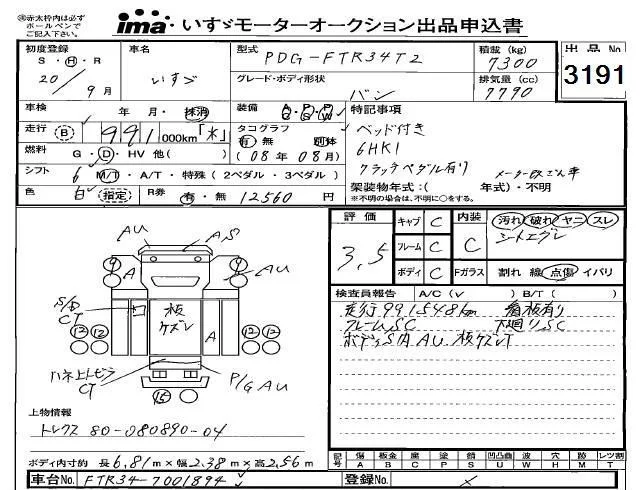 ㊟赤太枠内は必ず
ボールペンで
ご記入下さい。
ima いすゞモーターオークション出品申込書
初度登録
S・H・R
20/9月
車名
いすゞ
型式
PDG-FTR34T2
積載 (kg)
7300
出品No
3191
グレード・ボディ形状
バン
排気量 (cc)
7790
車検
年 月・抹消
装備
特記事項
走行 B 991000km「水」
タコグラフ
有・無 別体
(08年08月)
ベッド付き
6HK1
クラッチペダル有り
燃料
G・D・HV 他( )
シフト
6 M/T・A/T・特殊(2ペダル・3ペダル)
架装物年式:( 年式)・不明
※不明の場合は、不明に○をする。
色
白 指定
R券
有・無 12560 円
評価
3.5
キャブ C
フレーム C
ボディ C
内装
C
Fガラス
汚れ 破れ ヤニ スレ
割れ 線 点傷 イパリ
検査員報告 A/C(∨) B/T( )
走行991548km 看板有り
フレームSC 下廻りSC
AU
AS
A
9
AU
S/D
CT
板
ケズレ
A
12 12
12 12
CT
P/G AU
15
上物情報
トレクス 80-080890-04
ボディ内寸約 長6.81m×幅2.38m×高2.56m
記号 傷A 板金B 腐C 塗P 錆S 凹凸凹U 波W 穴H 跡M レツ割T
車台No. FTR34-7001894
登録No.